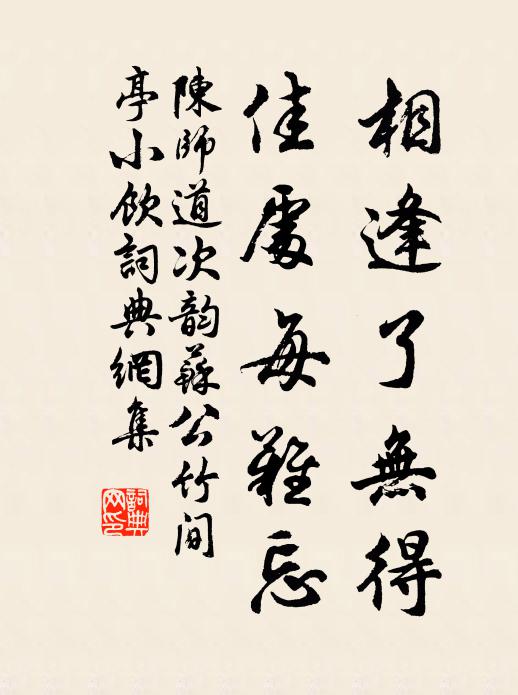 相逢了無得
佳處每難忘
陳師道次韵蘇公竹間
亭小飲詞典網集
詞典
网印